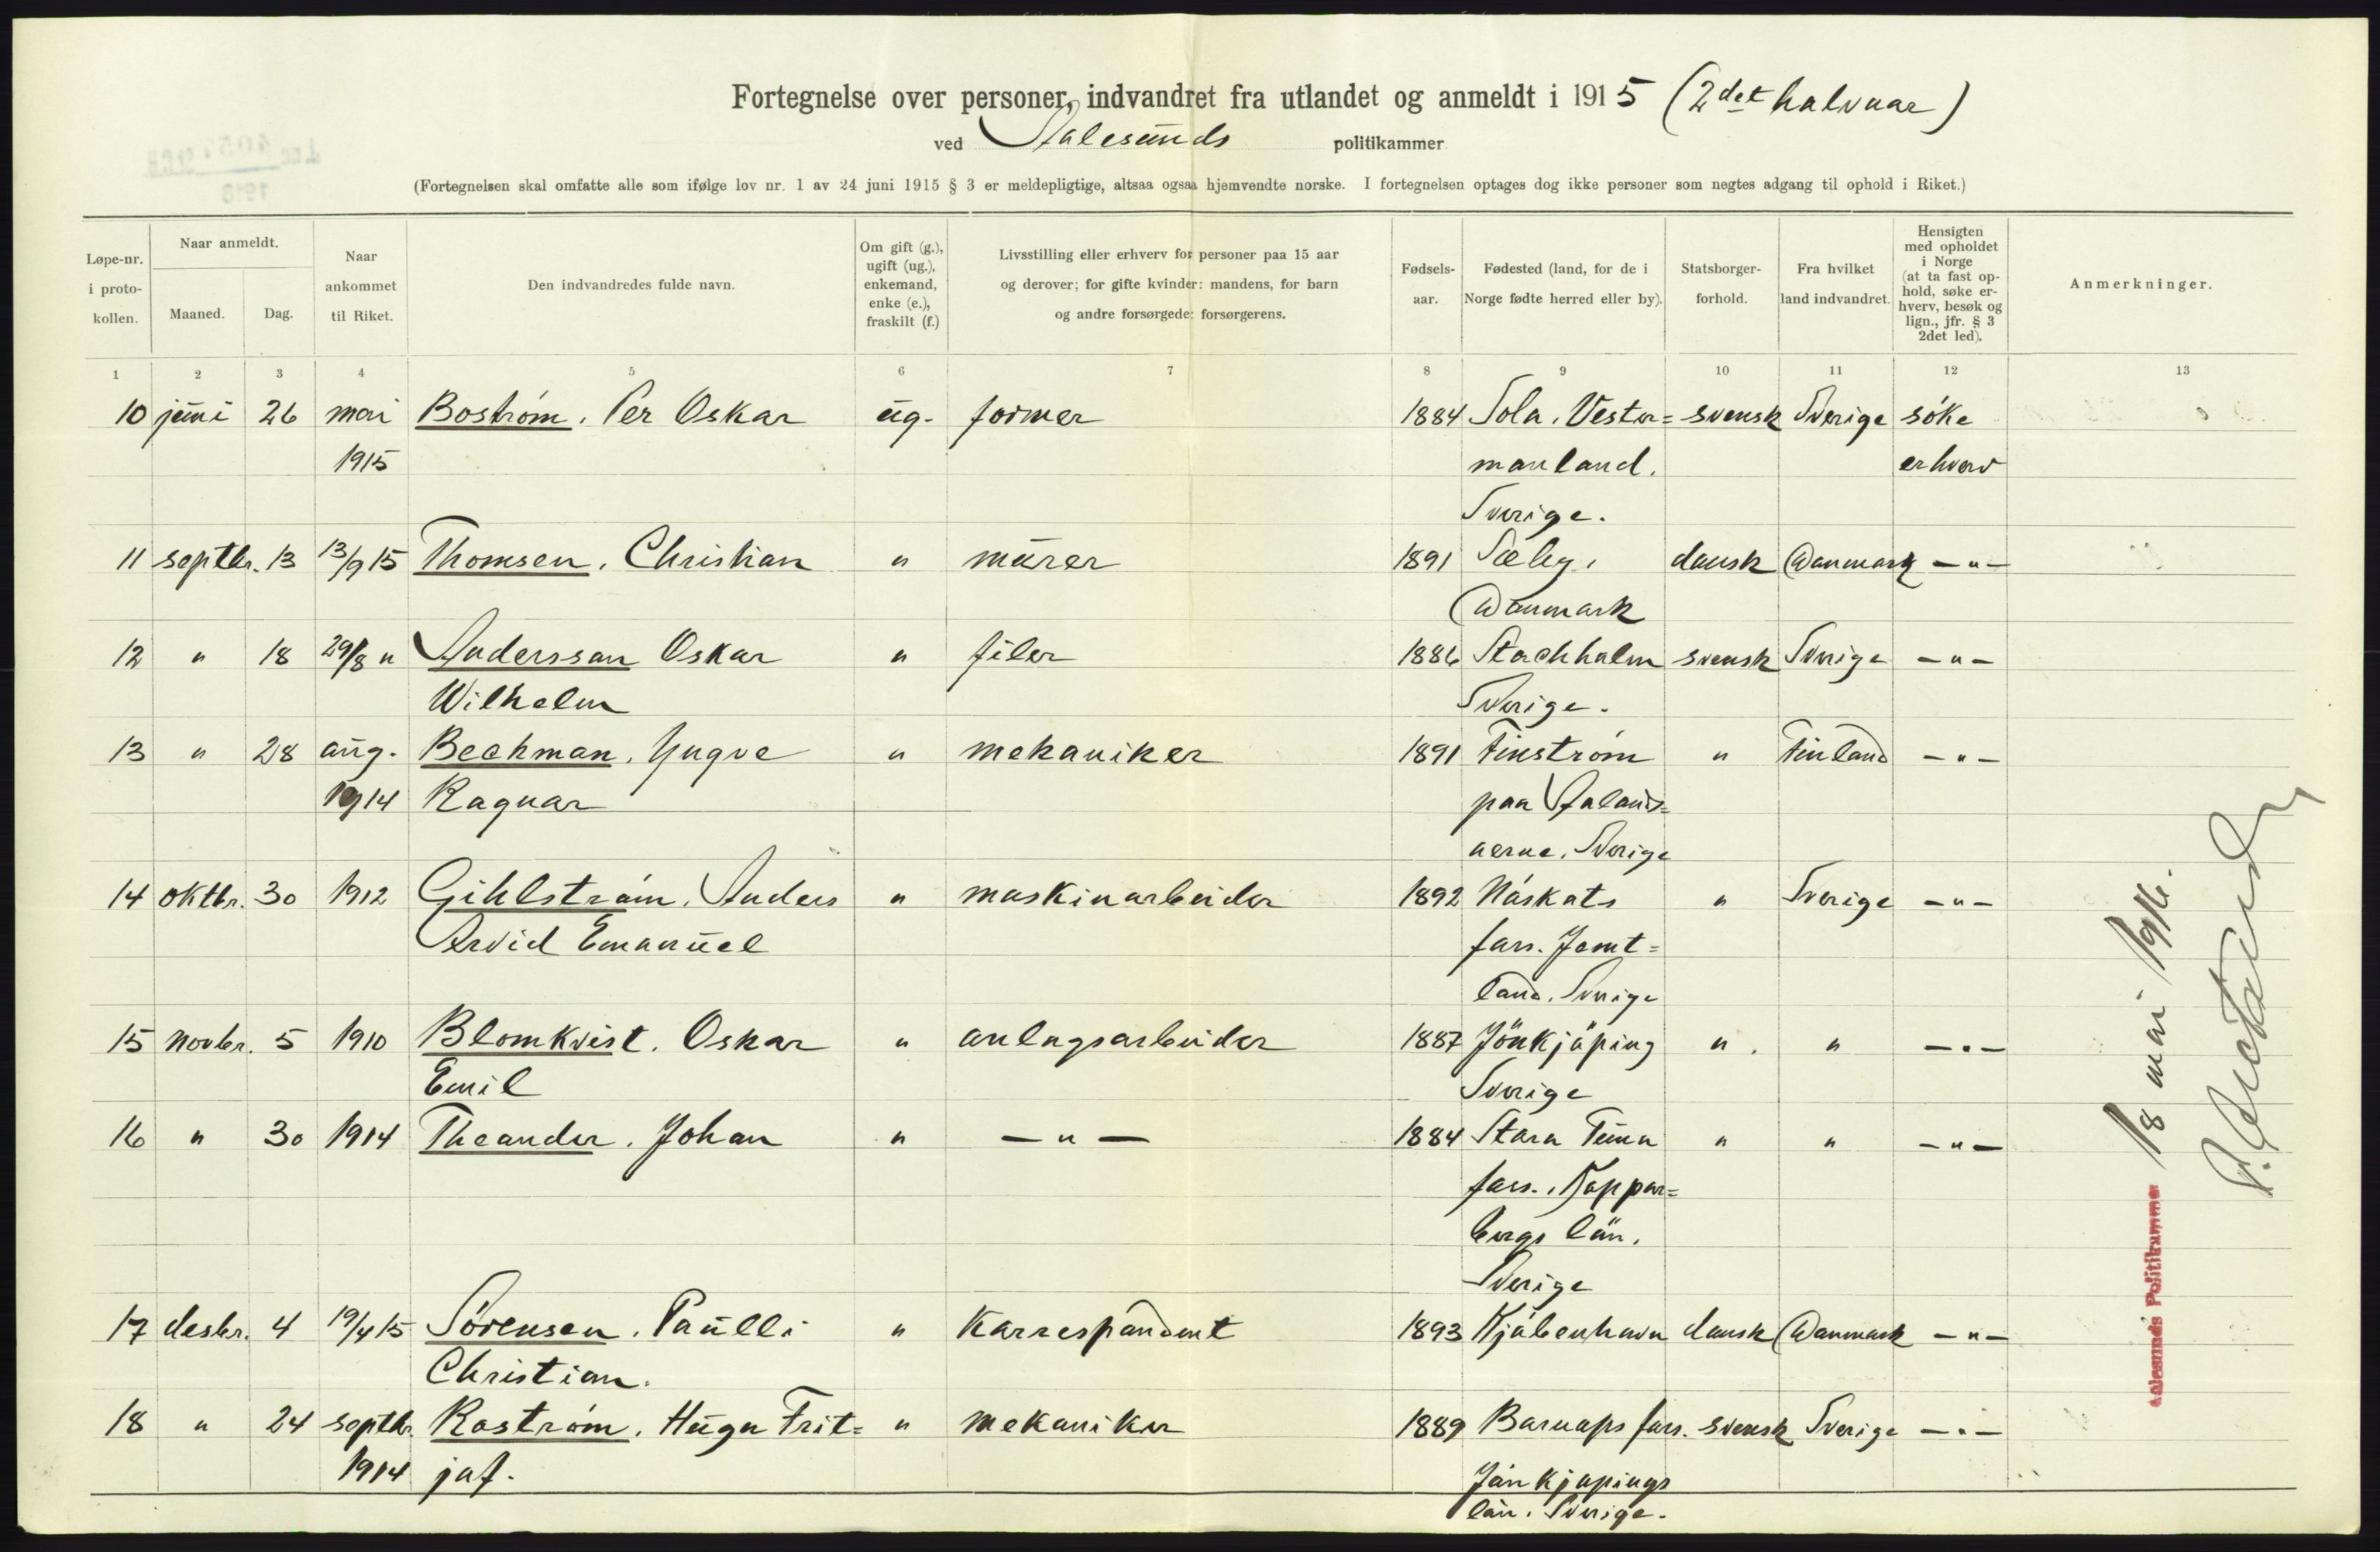 Fortegnelse over personer, indvandret fra utlandet og anmeldt i 1915 (2det halvaar)
ved Aalesunds politikammer
(Fortegnelsen skal omfatte alle som ifølge lov nr. 1 av 24 juni 1915 § 3 er meldepligtige, altsaa ogsaa hjemvendte norske. I fortegnelsen optages dog ikke personer som negtes adgang til ophold i Riket.)
Løpe-nr. i proto-kollen.
Naar anmeldt.
Maaned.
Dag.
Naar ankommet til Riket.
Den indvandredes fulde navn.
Om gift (g.), ugift (ug.), enkemand, enke (e.), fraskilt (f.)
Livsstilling eller erhverv for personer paa 15 aar
og derover; for gifte kvinder: mandens, for barn
og andre forsørgede: forsørgerens.
Fødsels-aar.
Fødested (land, for de i
Norge fødte herred eller by).
Statsborger-forhold.
Fra hvilket land indvandret.
Hensigten med opholdet i Norge (at ta fast op-hold, søke er-hverv, besøk og lign., jfr. § 3 2det led).
Anmerkninger.
1 2 3 4 5 6 7 8 9 10 11 12 13
10 juni 26 mai Boström, Per Oskar ug. former 1884 Sola, Vester= svensk Sverige söke
1915 manland, erhverv
Sverige.
11 septbr. 13 13/9 15 Thomsen, Christian " murer 1891 Sæby, dansk Danmark -"-
Danmark
12 " 18 29/8 " Anderssan Oskar " filer 1886 Stockholm svensk Sverige -"-
Wilhelm Sverige.
13 " 28 aug. Beckman, Yngve " mekaniker 1891 Finström " Finland -"-
1914 Ragnar paa Aalands=
øerne, Sverige
14 oktbr. 30 1912 Gihlström, Anders " maskinarbeider 1892 Näskats " Sverige -"-
Arvid Emanuel førs. Jemt=
land, Sverige
15 novbr. 5 1910 Blomkvist, Oskar " anlægsarbeider 1887 Jönkjöping " " -"-
Emil Sverige
16 " 30 1914 Theander, Johan " -"- 1884 Stora Tuna " " -"-
førs., Koppar=
bergs län,
Sverige
17 desbr. 4 19/4 15 Sörensen, Paulli " Korrespondent 1893 Kjöbenhavn dansk Danmark -"-
Christian.
18 " 24 septbr. Roström, Hugo Frit= " mekaniker 1889 Barnaps førs. svensk Sverige -"-
1914 jof. Jönkjöpings
län, Sverige.
Aalesunds Politikammer 18 mai 1916.